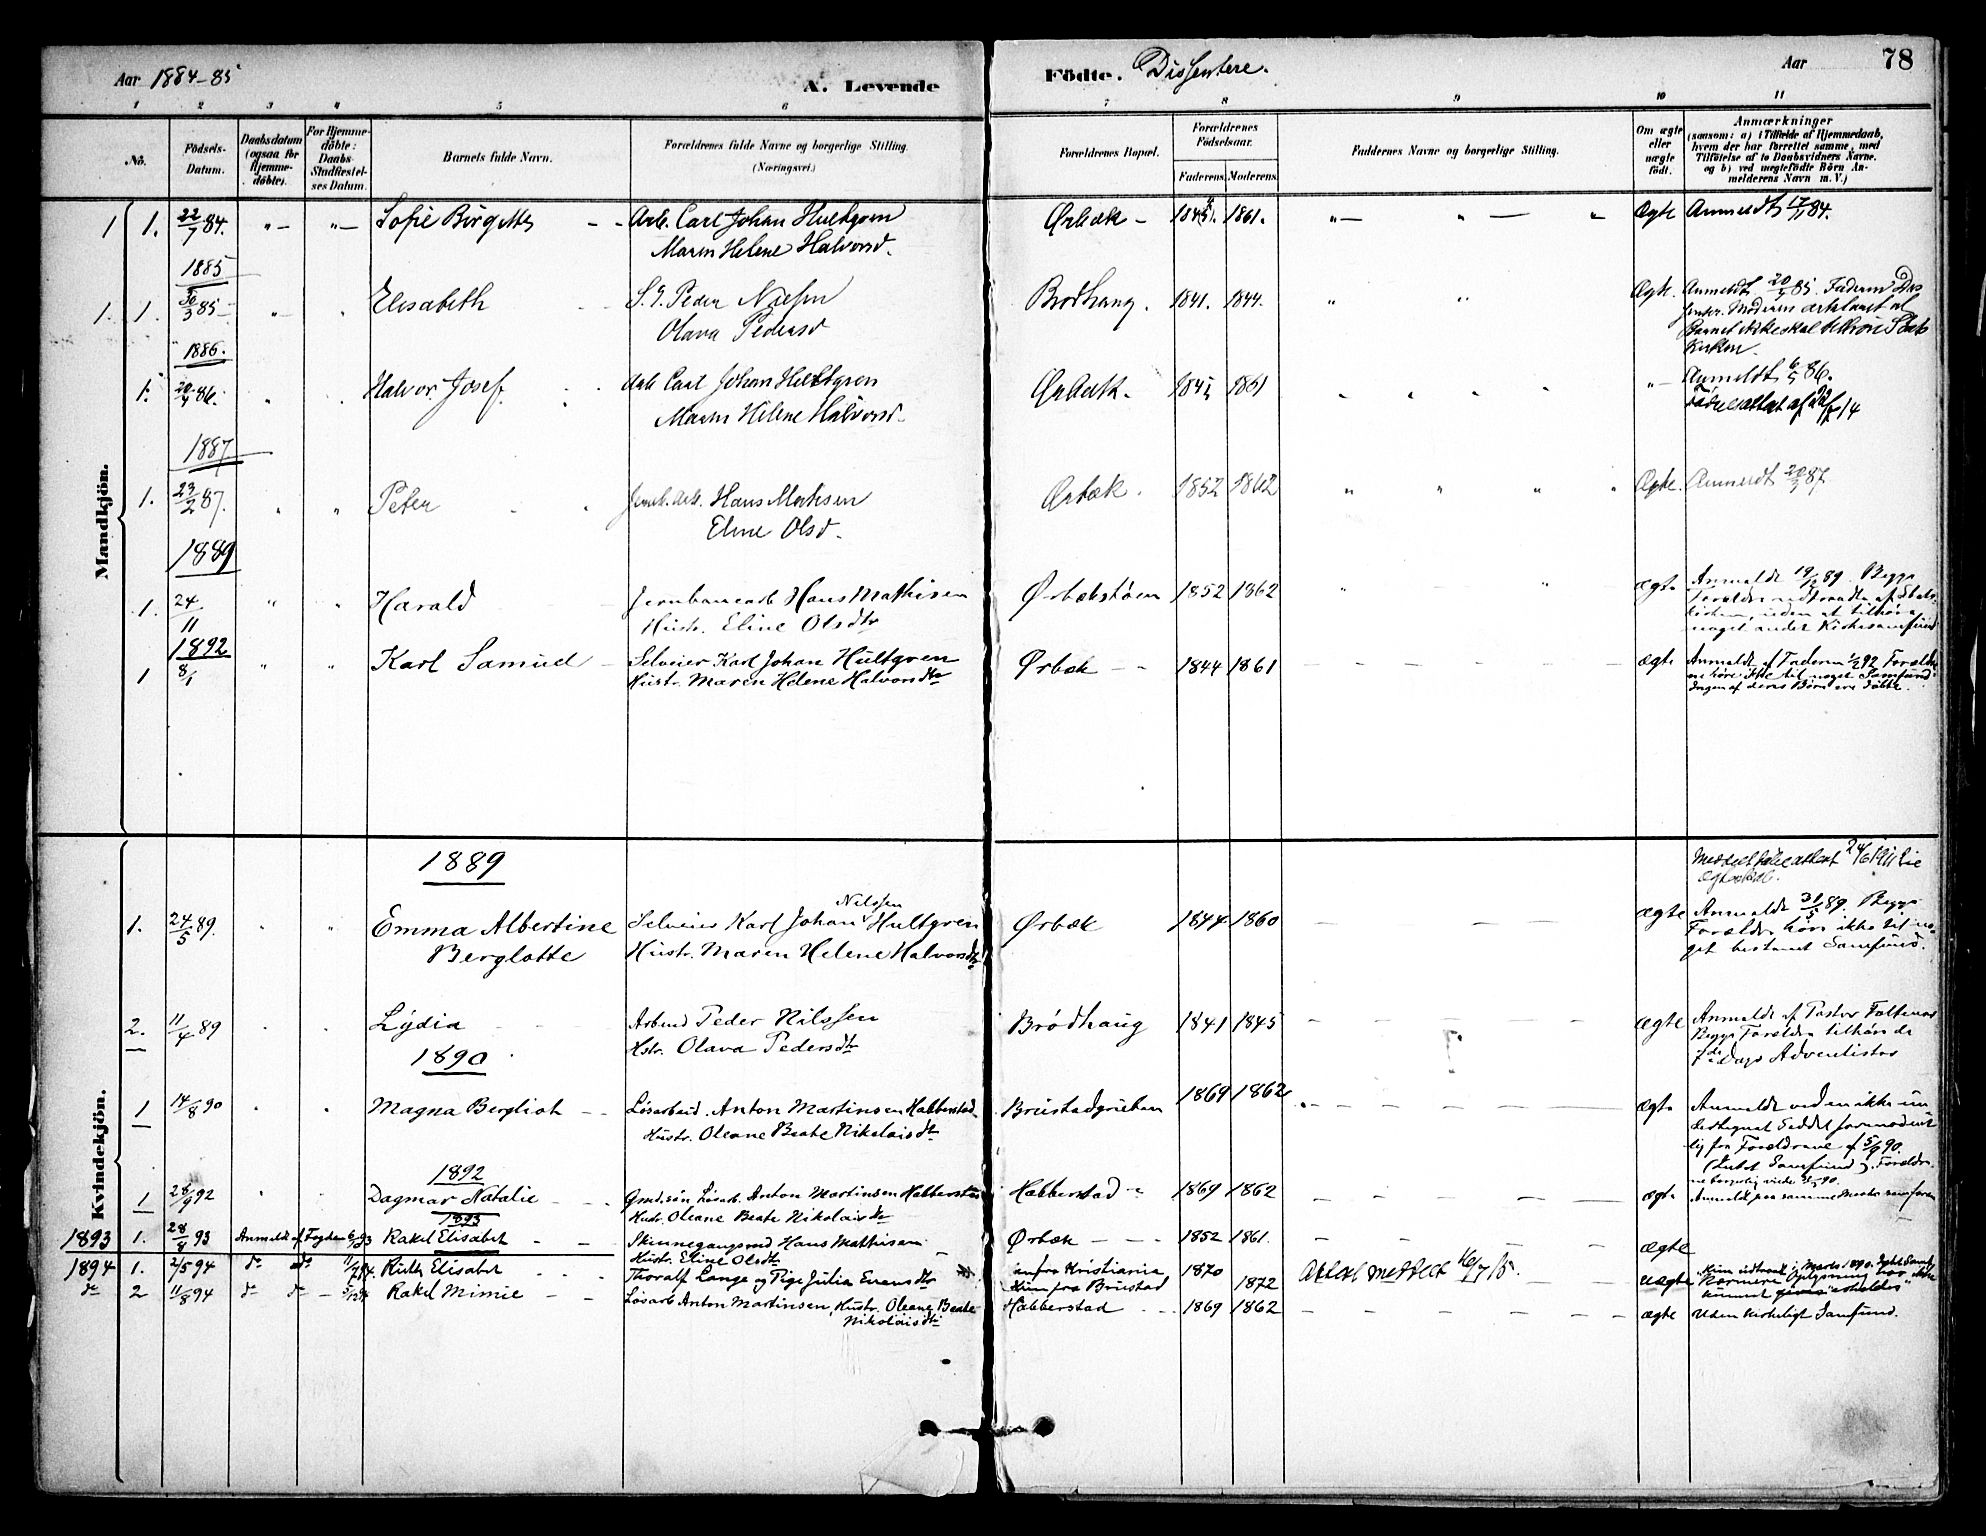 Aar 1884-85
A. Levende
Födte. Dissentere.
Aar
78
1 2 3 4 5 6 7 8 9 10 11
No.
Födsels-Datum.
Daabsdatum (ogsaa for Hjemme-döbte).
For Hjemme-döbte: Daabs-Stadfæstel-ses Datum.
Barnets fulde Navn.
Forældrenes fulde Navne og borgerlige Stilling. (Næringsvei.)
Forældrenes Bopæl.
Forældrenes Födselsaar.
Faderens. Moderens.
Faddernes Navne og borgerlige Stilling.
Om ægte eller uægte födt.
Anmærkninger
(saasom: a) i Tilfælde af Hjemmedaab, hvem der har forrettet samme, med Tilföielse af to Daabsvidners Navne. og b) ved uegtefödte Börn Anmelderens Navn m. V.)
Mandkjön.
1 1. 22/7 84. Sofie Birgitte Arb. Carl Johan Hultgren Ørbæk 1845. 1861. Ægte Anmeldt 84.
Maren Helene Halvorsd.
1885
1. 1. 30/3 85 Elisabeth Peder Nilsen Brødhaug. 1841. 1844. Ægte. Anmeldt 85. Faderen Dissenter. Moderen
Olava Pedersd
1886.
1. 86. Halvor Josef. Arb Carl Johan Hultgren Ørbæk. 1845 1861 Anmeldt 6/5 86.
Maren Helene Halvorsd.
Fødselsattest
1887.
1. 23/2 87. Peter Hans Mathisen Ørbæk. 1852 1862 Ægte. Anmeldt 87.
Eline Olsd.
1889
1. 24/11 Harald Jernbanearb Hans Mathisen Ørbækstøen 1852 1862 ægte Anmeldt 19/12 89. Begge
Hustr. Eline Olsdtr
Forældre udtraadte af Stats-
kirken, uden at tilhøre
noget andet Kirkesamfund
1892
1 8/1 Karl Samuel Selveier Karl Johan Hultgren Ørbæk 1844 1861 ægte Anmeldt af Faderen 1/2 92 Forældre
Hustr. Maren Helene Halvorsdtr
ne høre ikke til noget Samfund.
Ingen af deres Børn ere døbte.
Kvindekjön.
1889
1. 24/5 89. Emma Albertine Berglotte Selveier Karl Johan Nilssen Hultgren Ørbæk 1844 1860 ægte Anmeldt 31/5 89. Begge
Hustr. Maren Helene Halvorsdtr
Forældre høre ikke til no-
get bestemt Samfund.
2. 11/4 89 Lydia Arbmd Peder Nilssen Brødhaug 1841 1845 ægte Anmeldt af Pastor
Hstr. Olava Pedersdtr
Begge Forældre tilhørende
7de Dags Adventister
1890
1 14/8 90 Magna Bergliot Løsarbeid. Anton Martinsen Habberstad Brustadgruben 1869 1862 ægte Anmeldt ved en ikke un
Hustr. Oleane Beate Nikolaisdtr
dertegnet Seddel formodent
lig fra Forældrene af 5/9 90.
1892
1 28/9 92 Dagmar Natalie Løsarb. Anton Martinsen Habberstad Habberstad 1869 1862 ægte Anmeldt paa samme Maade som foran
Hustr. Oleane Beate Nikolaisdtr
1893
1893 1. 28/8 93 Anmeldt af Fogden Rakel Elisabet Skinnegangsmd Hans Mathisen Ørbæk 1852 1861. ægte
Hustr. Eline Olsdtr
1894 1. 2/5 94 do do Ruth Elisabet Thoralf Lange og Pige Julia Evensdtr 1870 1872 Attest meddelt 16/7 15. uægte
Kristiania
Hun fra Brustad
do 2 11/8 94 do do Rakel Mimie Løsarb Anton Martinsen, Hustr. Oleane Beate Nikolaisdtr Habberstad 1869 1862 ægte Uden kirkeligt Samfund.